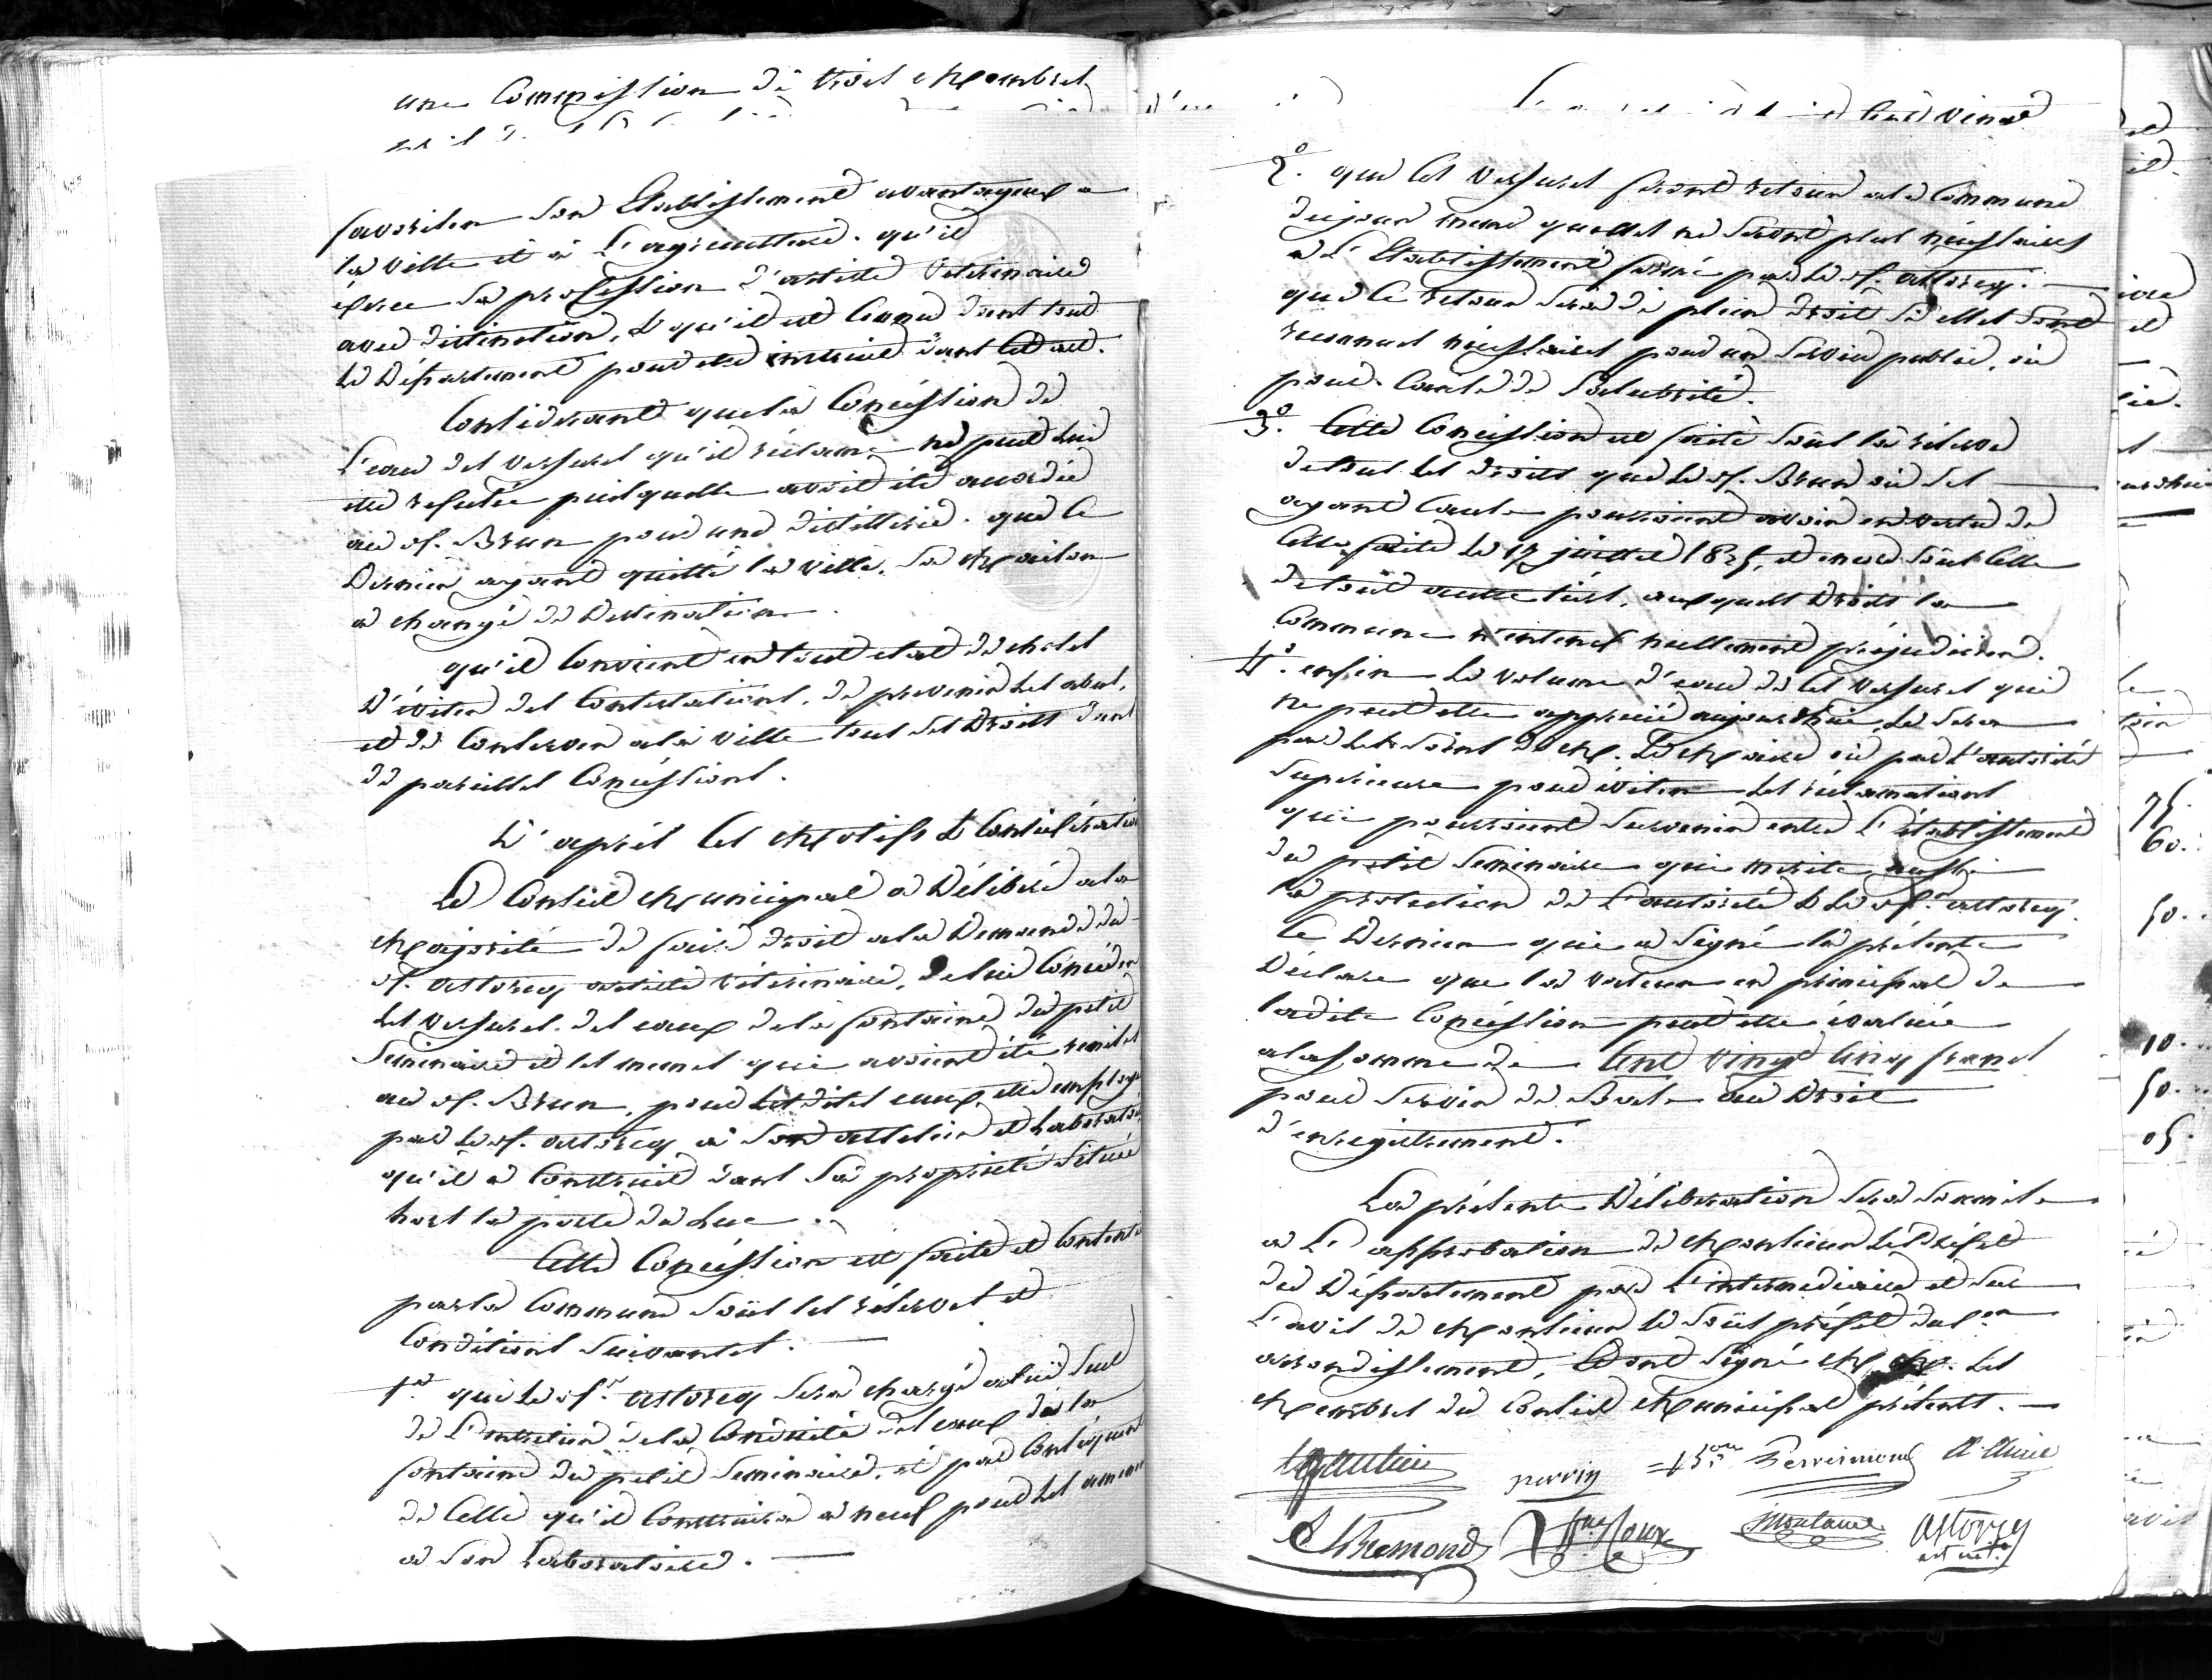 une Commission de trois Membres
favoriser son Etablissement avantageux a
la ville et à l'agriculture. qu'il
exerce sa profession d'artiste veterinaire
avec distinction, & qu'il est connu dans tout
le Département pour etre instruit dans cet art.
Considerant que la Concession de
l'eau des versures qu'il réclame ne peut lui
etre refusée puisqu'elle avoit été accordée
au Sr. Brun pour une distillerie. que ce
Dernier ayant quitté la ville, sa Maison
a changé de Destination.
qu'il convient en tout etat de choses
D'éviter des contestations, de prevenir les abus,
et de conserver a la ville tous ses Droits dans
de pareilles Concessions.
D'après ces Motifs & Considérations
Le Conseil Municipal a Délibéré a la
Majorité de faire droit a la Demande du
Sr. astorcy artiste véterinaire, de lui Concéder
les versures des eaux de la fontaine du petit
Seminaire et les memes qui avoient été remises
au Sr. Brun, pour lesdites eaux, etre employées
par le Sr. astorcy a son attelier et Laboratoire
qu'il a Construit dans sa propriété située
hors la porte du Luc.
Cette Concession est faite et Consentie
par la Commune sous les réserves et
Conditions suivantes.
1o. que le Sr. astorcy sera chargé a lui seul
de l'entretien de la Conduite des eaux de la
fontaine du petit Seminaire, et par Conséquent
de celle qu'il Construira a neuf pour les amener
a son Laboratoire.
Cent vingt
2o. que les versures feront retour a la Commune
du jour meme qu'elles ne seront plus nécessaires
a l'Etablissement formé par le Sr. astorcy.
que ce retour sera de plein droit si elles sont
reconnues nécessaires pour un service public, ou
pour cause de salubrité.
3o. Cette Concession est faite sous la réserve
de tous les droits que le Sr. Brun ou ses
ayant cause pourroient avoir en vertu de
celle faite le 17 juillet 1825, et encore sous celle
de tout autre tiers, auxquels Droits la
Commune n'entend nullement préjudicier.
4o. enfin le volume d'eau de ces versures qui
ne peut etre apprecié aujourdhui, le sera
par les soins de M. Le Maire ou par l'autorité
Superieure pour éviter les réclamations
qui pourroient survenir entre l'établissement
du petit Seminaire qui merite aussi
la protection de l'autorité & le Sr. astorcy.
Ce Dernier qui a Signé la présente
Déclare que la valeur en principal de
ladite Concession peut etre évaluée
a la somme de Cent vingt cinq francs
pour servir de Base au Droit
d'enregistrement.
La présente Déliberation sera soumise
a l'approbation de Monsieur le Préfet
du Département par l'intermediaire et sur
l'avis de Monsieur le Sous préfet du 1er
arrondissement, & ont Signé MM. les
Membres du Conseil Municipal présents.
perrin Perrimond
Montaud astorcy
art vet.